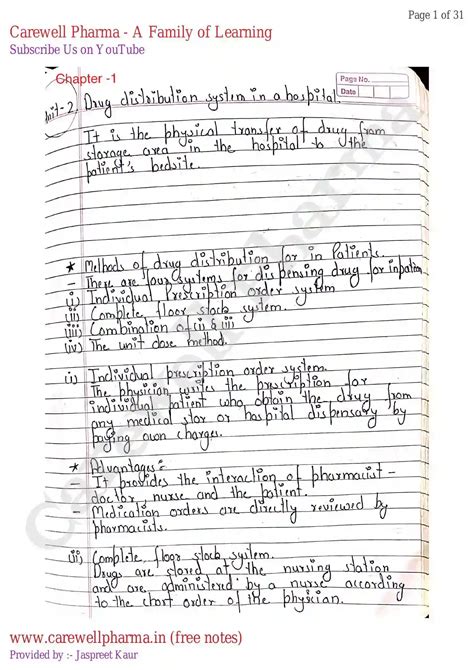 Page 1 of 31
Carewell Pharma - A Family of Learning
Subscribe Us on YouTube
Chapter -1
Page No.
Date
Unit-2. Drug distribution system in a hospital.
It is the physical transfer of drug from
storage area in the hospital to the
patient's bedsite.
* Methods of drug distribution for in Patients.
- There are four systems for dispensing drug for inpatien
i) Individual Prescription order system
ii) Complete floor stock system.
iii) Combination of (i) & (ii)
(iv) The unit dose method.
i) Individual prescription order system.
The physician writes the prescription for
individual patient who obtain the drug from
any medical stor or hospital dispensary by
paying own charges.
* Advantages =
- It provides the interaction of pharmacist-
doctor, nurse and the patient.
- Medication orders are directly reviewed by
pharmacists.
ii) Complete floor stock system.
Drugs are stored at the nursing station
and are administered by a nurse according
to the chart order of the physician.
Carewell Pharma
www.carewellpharma.in (free notes)
Provided by :- Jaspreet Kaur